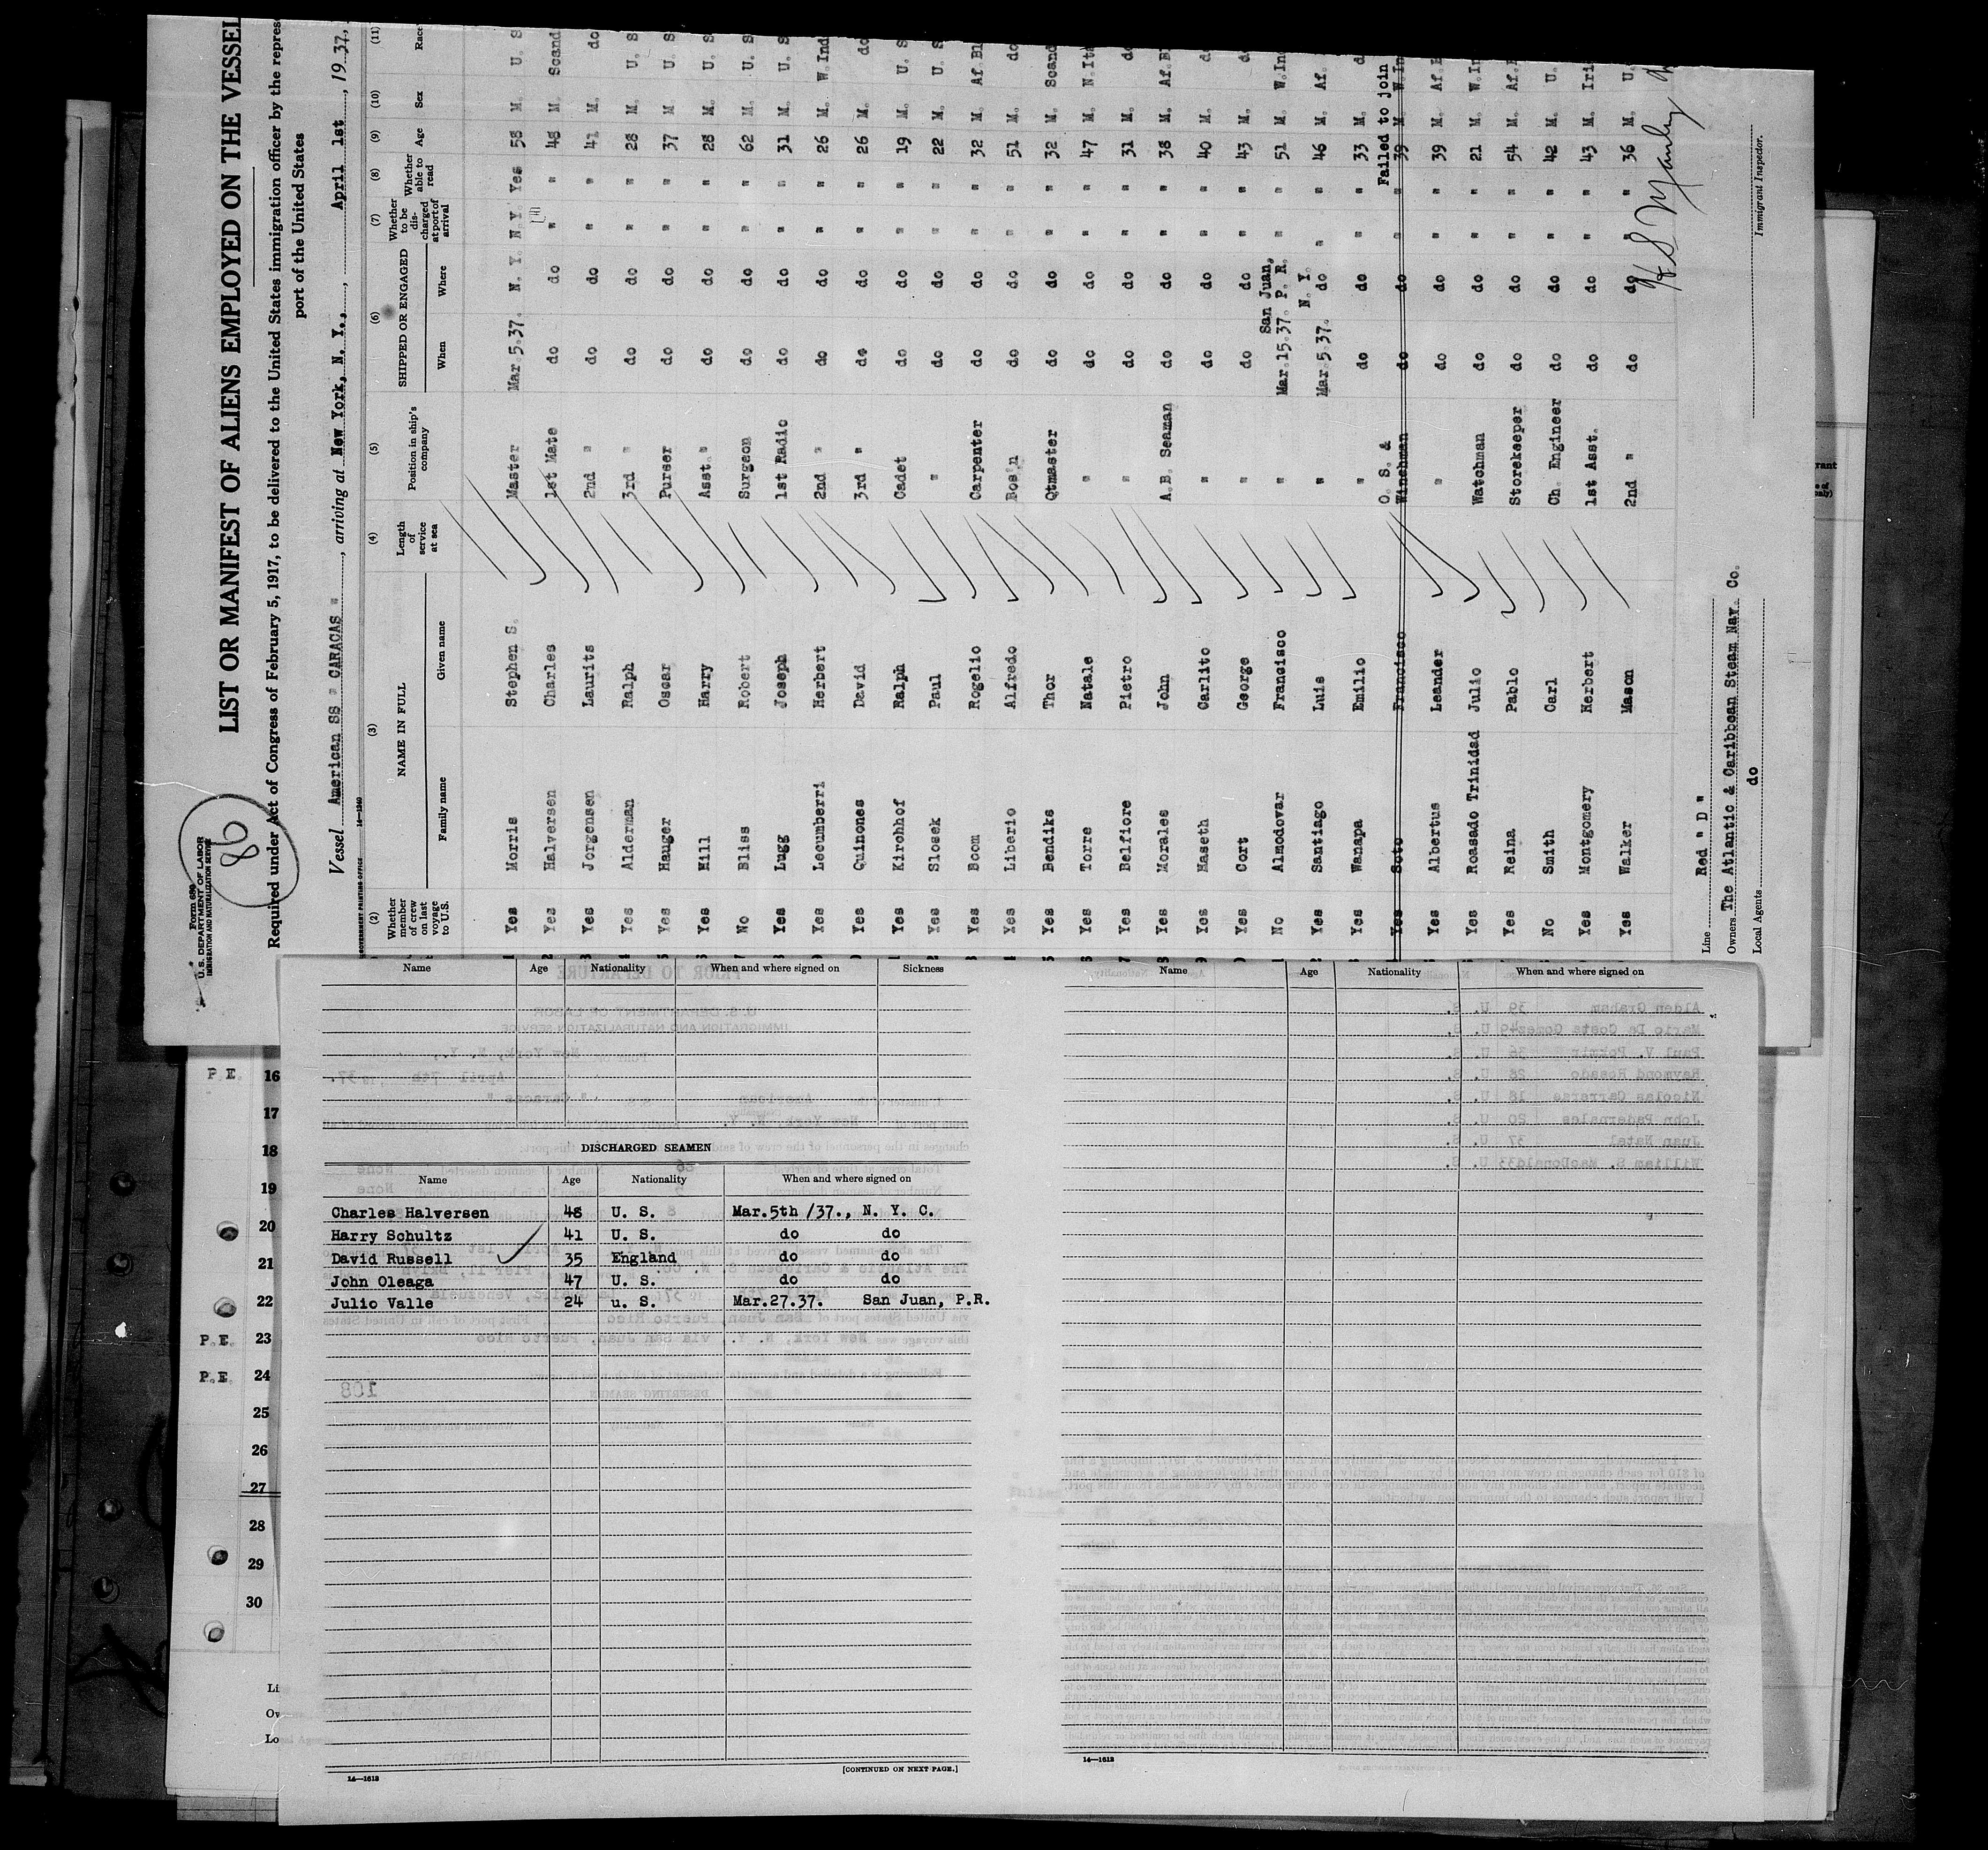 Form 689
U. S. DEPARTMENT OF LABOR
IMMIGRATION AND NATURALIZATION SERVICE
86
LIST OR MANIFEST OF ALIENS EMPLOYED ON THE VESSEL
Required under Act of Congress of February 5, 1917, to be delivered to the United States immigration officer by the repres
port of the United States
Vessel American SS " CARACAS ", arriving at New York, N. Y., April 1st, 1937,
GOVERNMENT PRINTING OFFICE 14—1240
(2) (3) (4) (5) (6) (7) (8) (9) (10) (11)
Whether member of crew on last voyage to U.S. NAME IN FULL Family name Given name Length of service at sea Position in ship's company SHIPPED OR ENGAGED When Where Whether to be discharged at port of arrival Whether able to read Age Sex Race
Yes Morris Stephen S. Master Mar.5.37. N. Y. N. Y. Yes 58 M. U. S
Yes Halversen Charles 1st Mate do do " " 48 M. Scand
Yes Jorgensen Laurits 2nd " do do " " 41 M. do
Yes Alderman Ralph 3rd " do do " " 28 M. U. S
Yes Hauger Oscar Purser do do " " 37 M U. S
Yes Hill Harry Asst " do do " " 28 M. U. S
No Bliss Robert Surgeon do do " " 62 M. U. S
Yes Lugg Joseph 1st Radio do do " " 31 M. U. S
Yes Lecumberri Herbert 2nd " do do " " 26 M. W.Ind
Yes Quinones David 3rd " do do " " 26 M. do
Yes Kirchhof Ralph Cadet do do " " 19 M. U. S
Yes Slosek Paul " do do " " 22 M. U. S
Yes Boom Rogelio Carpenter do do " " 32 M. Af.Bl
Yes Liberio Alfredo Bos'n do do " " 51 M. do
Yes Bendiks Thor Qtmaster do do " " 32 M. Scand
Yes Torre Natale " do do " " 47 M. N.Ita
Yes Belfiore Pietro " do do " " 31 M. do
Yes Morales John A.B. Seaman do do " " 38 M. Af.Bl
Yes Maseth Carlito " do do " " 40 M. d
Yes Cort George " do do " " 43 M. d
No Almodovar Francisco " Mar.15.37. San Juan, P. R. " " 51 M. W.Ind
Yes Santiago Luis " Mar.5.37. N. Y. do " " 46 M. Af.
Yes Wanapa Emilio " do do " " 33 M. d
Yes Soto Francisco O. S. & Winchman do do " " 39 M. W.In
Failed to join
Yes Albertus Leander " do do " " 39 M. Af.B
Yes Roasado Trinidad Julio Watchman do do " " 21 M. W.In
Yes Reina Pablo Storekeeper do do " " 54 M. Af.B
No Smith Carl Ch. Engineer do do " " 42 M. U.
Yes Montgomery Herbert 1st Asst. do do " " 43 M. Iri
Yes Walker Mason 2nd " do do " " 36 M. U.
Line Red " D "
Owners The Atlantic & Caribbean Steam Nav. Co.
Local Agents do
Immigrant Inspector.
Name Age Nationality When and where signed on Sickness
DISCHARGED SEAMEN
Name Age Nationality When and where signed on
Charles Halversen 48 U. S. Mar.5th /37., N. Y. C.
Harry Schultz 41 U. S. do do
David Russell 35 England do do
John Oleaga 47 U. S. do do
Julio Valle 24 u. S. Mar.27.37. San Juan, P.R.
14—1613
[CONTINUED ON NEXT PAGE.]
Name Age Nationality When and where signed on
Alden Graham 39 U. S.
Mario Da Costa Gomez 49 U. S.
Paul V. Pokmir 36 U. S.
Raymond Rosado 28 U. S.
Nicolas Carreras 18 U. S.
John Padernales 20 U. S.
Juan Natal 37 U. S.
William S. MacDonald 33 U. S.
14—1613
P E. 16
17
18
19
20
21
22
P.E. 23
P.E. 24
25
26
27
28
29
30
Li
Ow
Lo